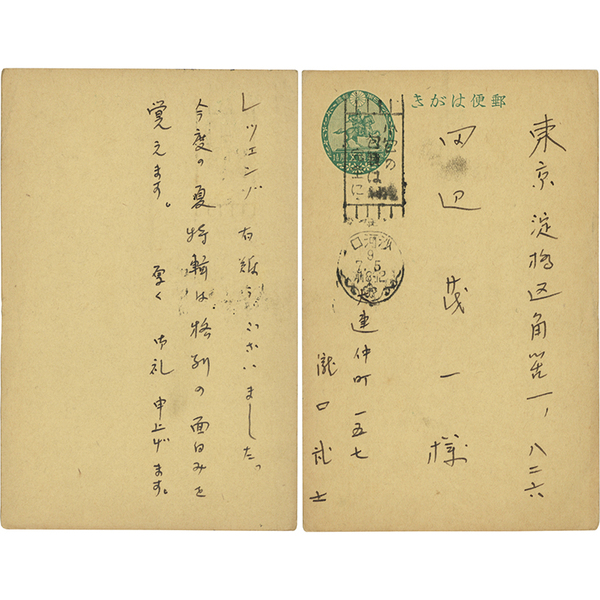 レツェンゾ有難うございました。
今度の夏特輯は、格別の面白みを
覚えます。 厚く 御礼申上げます。
郵便はがき
東京淀橋区角筈一ノ八二六
田辺茂一様
大連仲町一五七
瀧口武士
沙河口